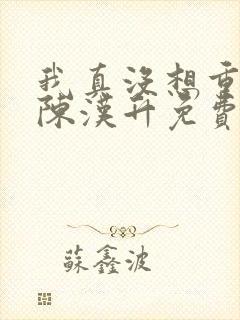 我真沒想重
陳漢升免費
蘇鑫波